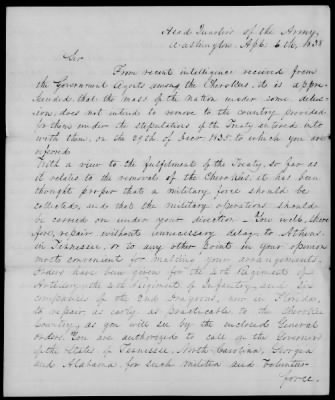 Head Quarters of the Army,
Washington, Apl. 6th, 1838
Sir
From recent intelligence received from
the Government Agents among the Cherokees, it is appre-
hended that the mass of the nation under some delu-
sion, does not intend to remove to the country provided
for them under the stipulations of the Treaty entered into
with them, on the 29th of Decr 1835, to which you are
referred
With a view to the fulfilment of the Treaty, so far as
it relates to the removal of the Cherokees, it has been
thought proper that a military force should be
collected, and that the military operations should
be carried on under your direction - You will, there
fore, repair without unnecessary delay, to Athens
in Tennessee, or to any other point in your opinion
most convenient for making your arrangements.
Orders have been given for the 4th Regiment of
Artillery, the 4th Regiment of Infantry, and Six
companies of the 2nd Dragoons, now in Florida,
to repair as early as practicable to the Cherokee
Country, as you will see by the enclosed General
orders. You are authorized to call on the Governors
of the States of Tennessee, North Carolina, Georgia
and Alabama, for such militia and Volunteer
force,